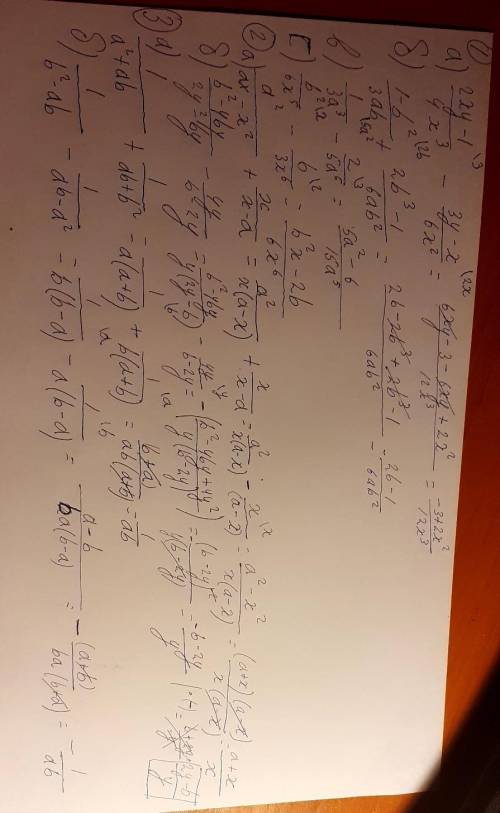 ①
а) (2xy-1)/(4x³) \3 - (3y-x)/(6x²) \2x = (6xy-3-6xy+2x²)/(12x³) = (-3+2x²)/(12x³)
б) (1-b²)/(3ab) \2b + (2b³-1)/(6ab²) = (2b-2b³+2b³-1)/(6ab²) = (2b-1)/(6ab²)
в) 1/(3a³) \5a² - 2/(5a⁵) \3 = (5a²-6)/(15a⁵)
г) b²/(6x⁵) - b/(3x⁶) \2 = (b²x-2b)/(6x⁶)
② а) a²/(ax-x²) + x/(x-a) = a²/(x(a-x)) + x/(x-a) = a²/(x(a-x)) - x/(a-x) \x = (a²-x²)/(x(a-x)) = ((a+x)(a-x))/(x(a-x)) = (a+x)/x
б) (b²-4by)/(2y²-by) - 4y/(b-2y) = (b²-4by)/(y(2y-b)) - 4y/(b-2y) \y = -(b²-4by+4y²)/(y(b-2y)) = (b-2y)²/(y(b-2y)) = -(b-2y)/y |·(-1) = (2y-b)/y
③ а) 1/(a²+ab) + 1/(ab+b²) = 1/(a(a+b)) \b + 1/(b(a+b)) \a = (b+a)/(ab(a+b)) = 1/ab
б) 1/(b²-ab) - 1/(ab-a²) = 1/(b(b-a)) - 1/(a(b-a)) = (a-b)/(ba(b-a)) = -(a+b)/(ba(b+a)) = -1/ab